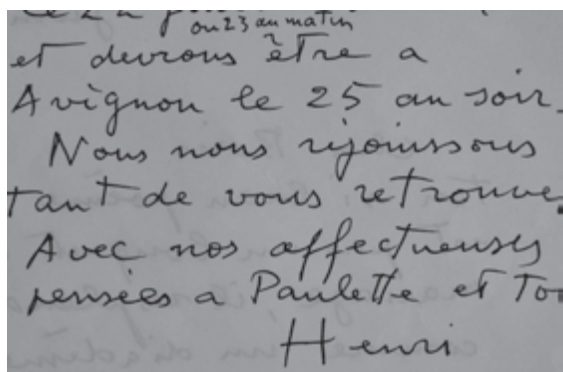 le 22
ou 23 au matin
et devrons être a
Avignon le 25 au soir.
Nous nous rejouissons
tant de vous retrouve
Avec nos affectueuses
pensées a Paulette et To
Henri